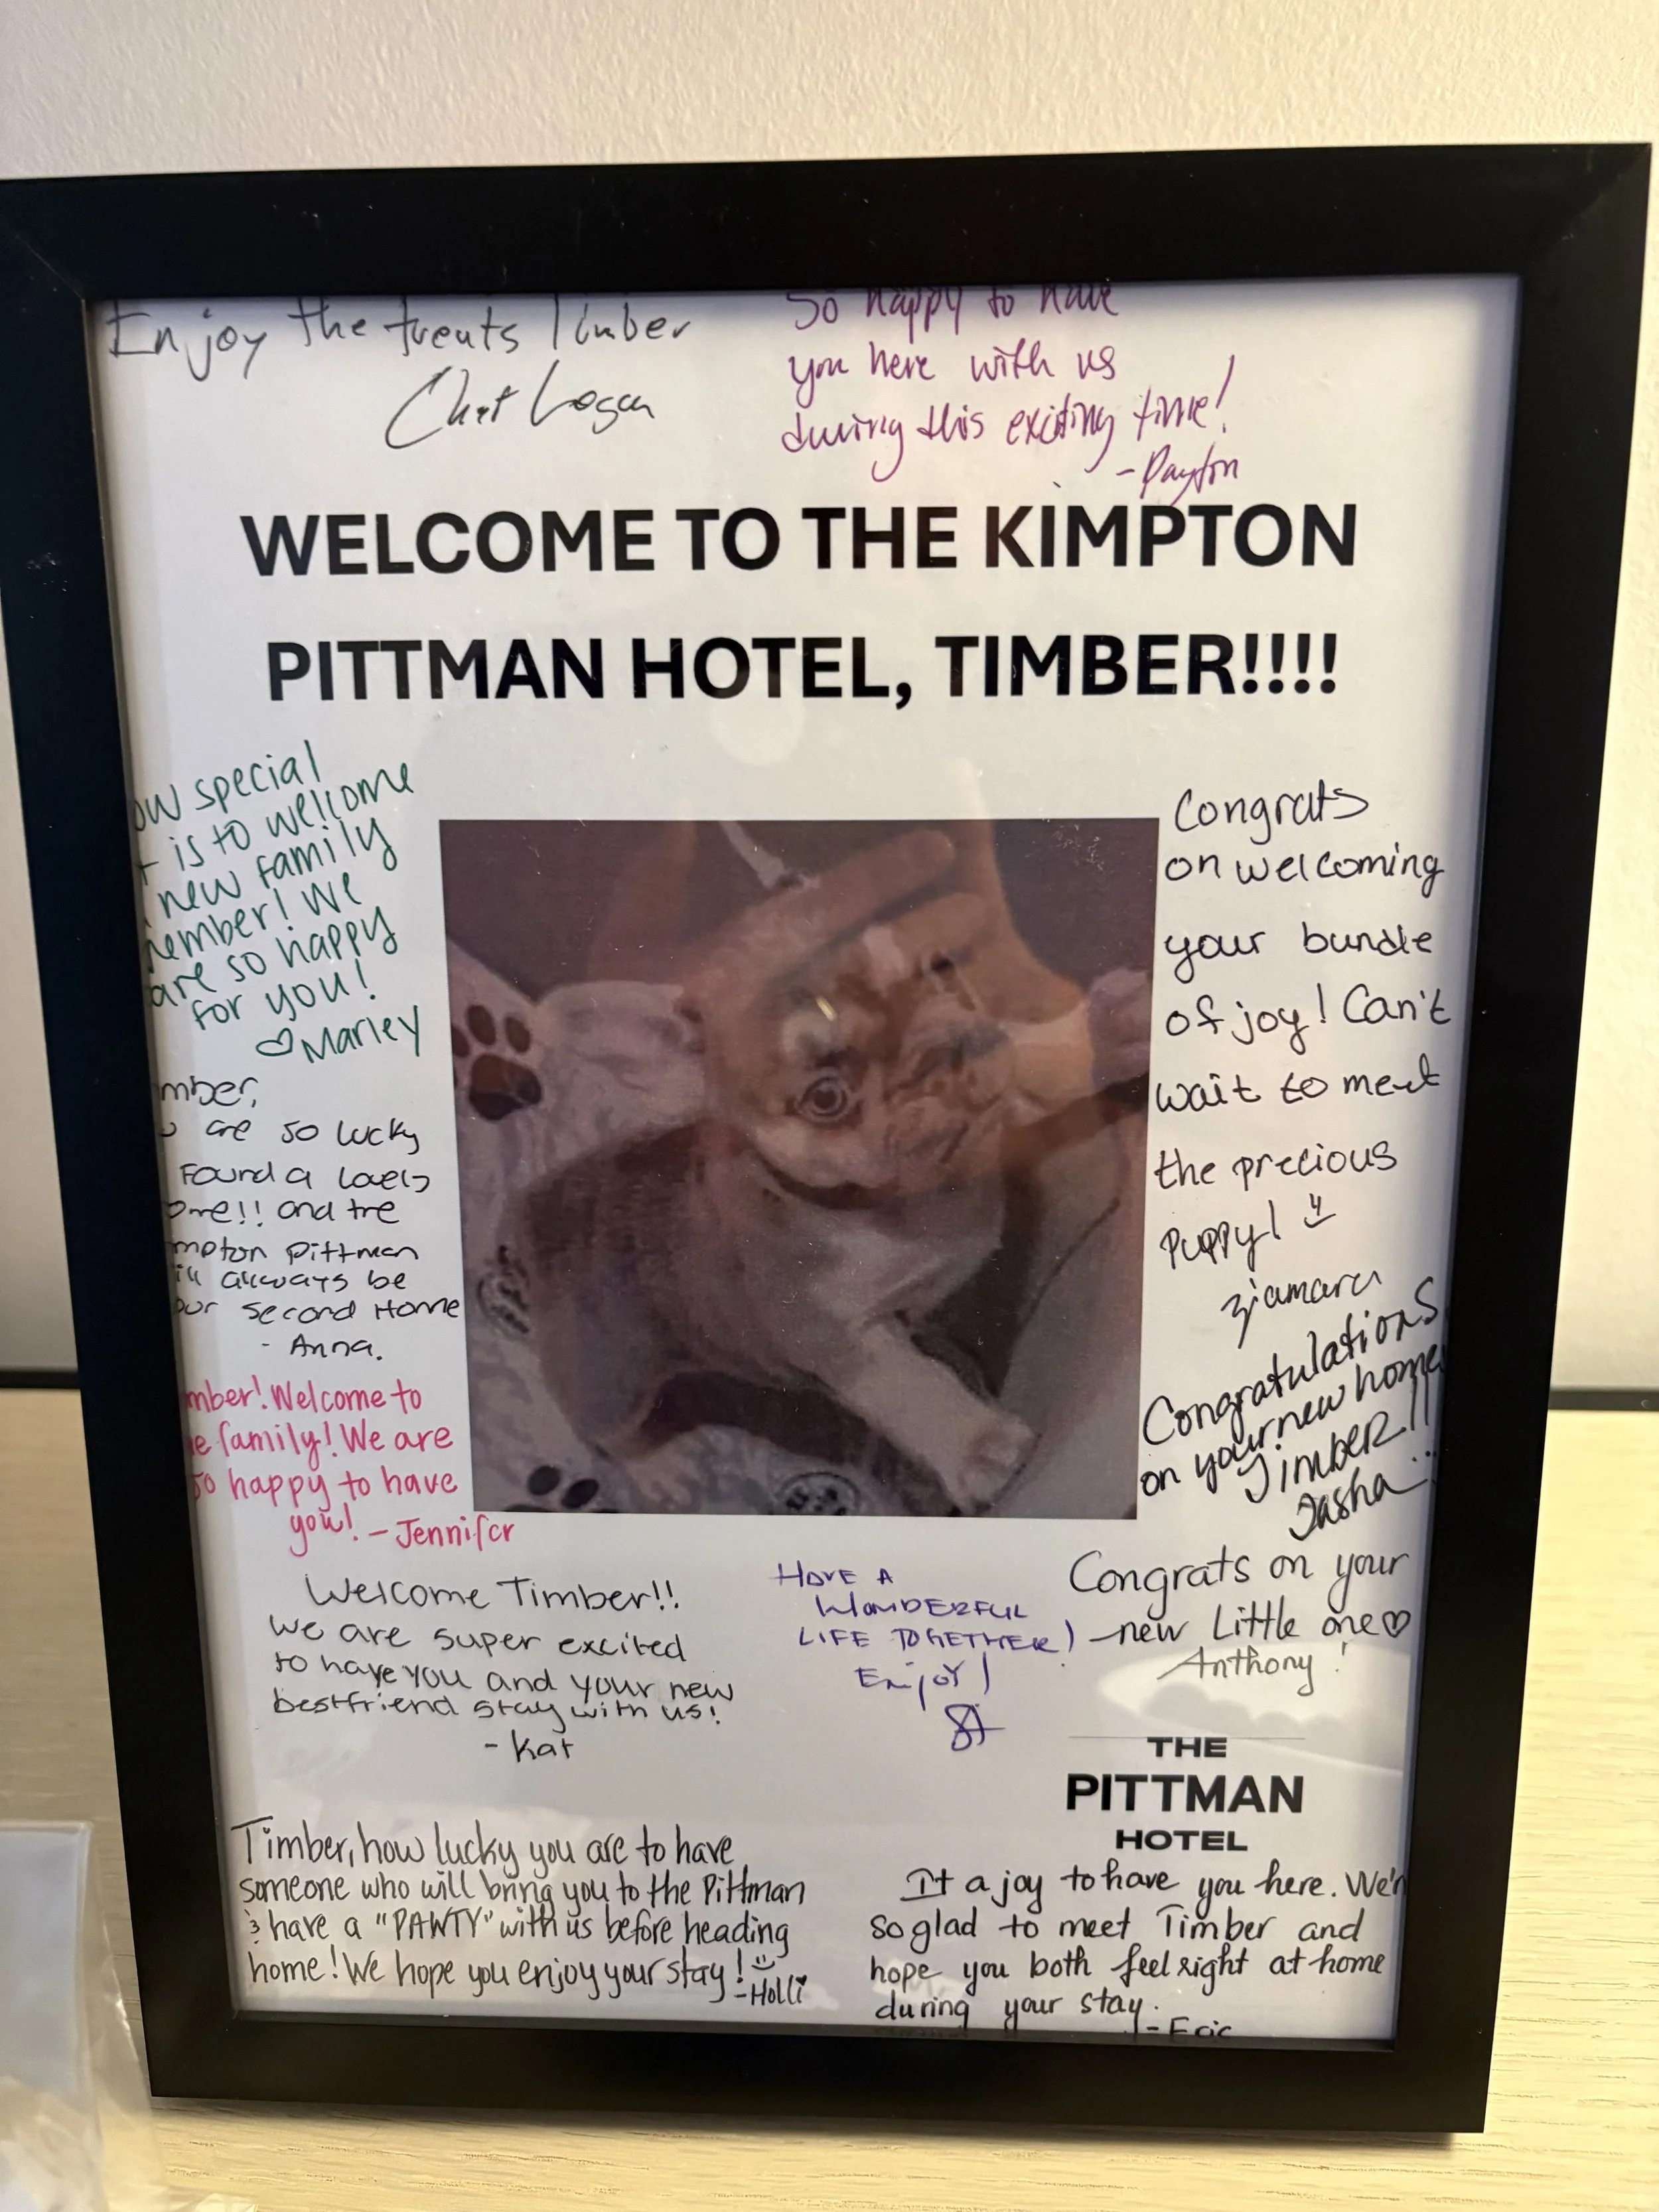 Enjoy the treats Timber
Chet Logan
So happy to have
you here with us
during this exciting time!
- Payton
WELCOME TO THE KIMPTON
PITTMAN HOTEL, TIMBER!!!!
ow special
t is to wellcome
new family
ember! We
are so happy
for you!
♡Marley
mber,
are so lucky
Found a lovely
ome!! and the
mpton Pittman
ill always be
our second Home
- Anna.
mber! Welcome to
e family! We are
so happy to have
you! - Jennifer
Congrats
on welcoming
your bundle
of joy! Can't
wait to meet
the precious
puppy!
ziamara
Congratulations
on your new home
Timber!!
Tasha
Welcome Timber!!
we are super excited
to have you and your new
bestfriend stay with us!
- Kat
HAVE A
WONDERFUL
LIFE TOGETHER!
Enjoy!
Congrats on your
new Little one♡
Anthony!
THE
PITTMAN
HOTEL
Timber, how lucky you are to have
someone who will bring you to the Pittman
& have a "PAWTY" with us before heading
home! We hope you enjoy your stay!
-Holli
It a joy to have you here. We'r
so glad to meet Timber and
hope you both feel right at home
during your stay.
- Eric